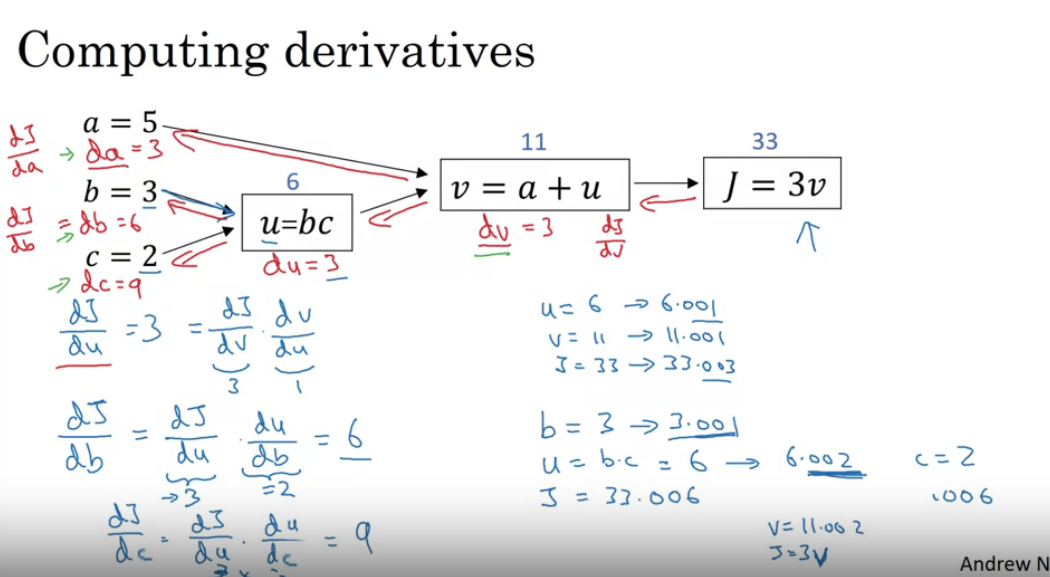 Computing derivatives
a = 5
dJ/da → da = 3
b = 3
dJ/db = db = 6
→
c = 2
→ dc = 9
6
u=bc
du = 3
11
v = a + u
dv = 3 dJ/dv
33
J = 3v
↑
dJ/du = 3 = dJ/dv · dv/du
3 1
dJ/db = dJ/du · du/db = 6
→3 =2
dJ/dc = dJ/du · du/dc = 9
u = 6 → 6.001
v = 11 → 11.001
J = 33 → 33.003
b = 3 → 3.001
u = b·c = 6 → 6.002 c = 2
J = 33.006 .006
v = 11.002
J = 3v
Andrew N